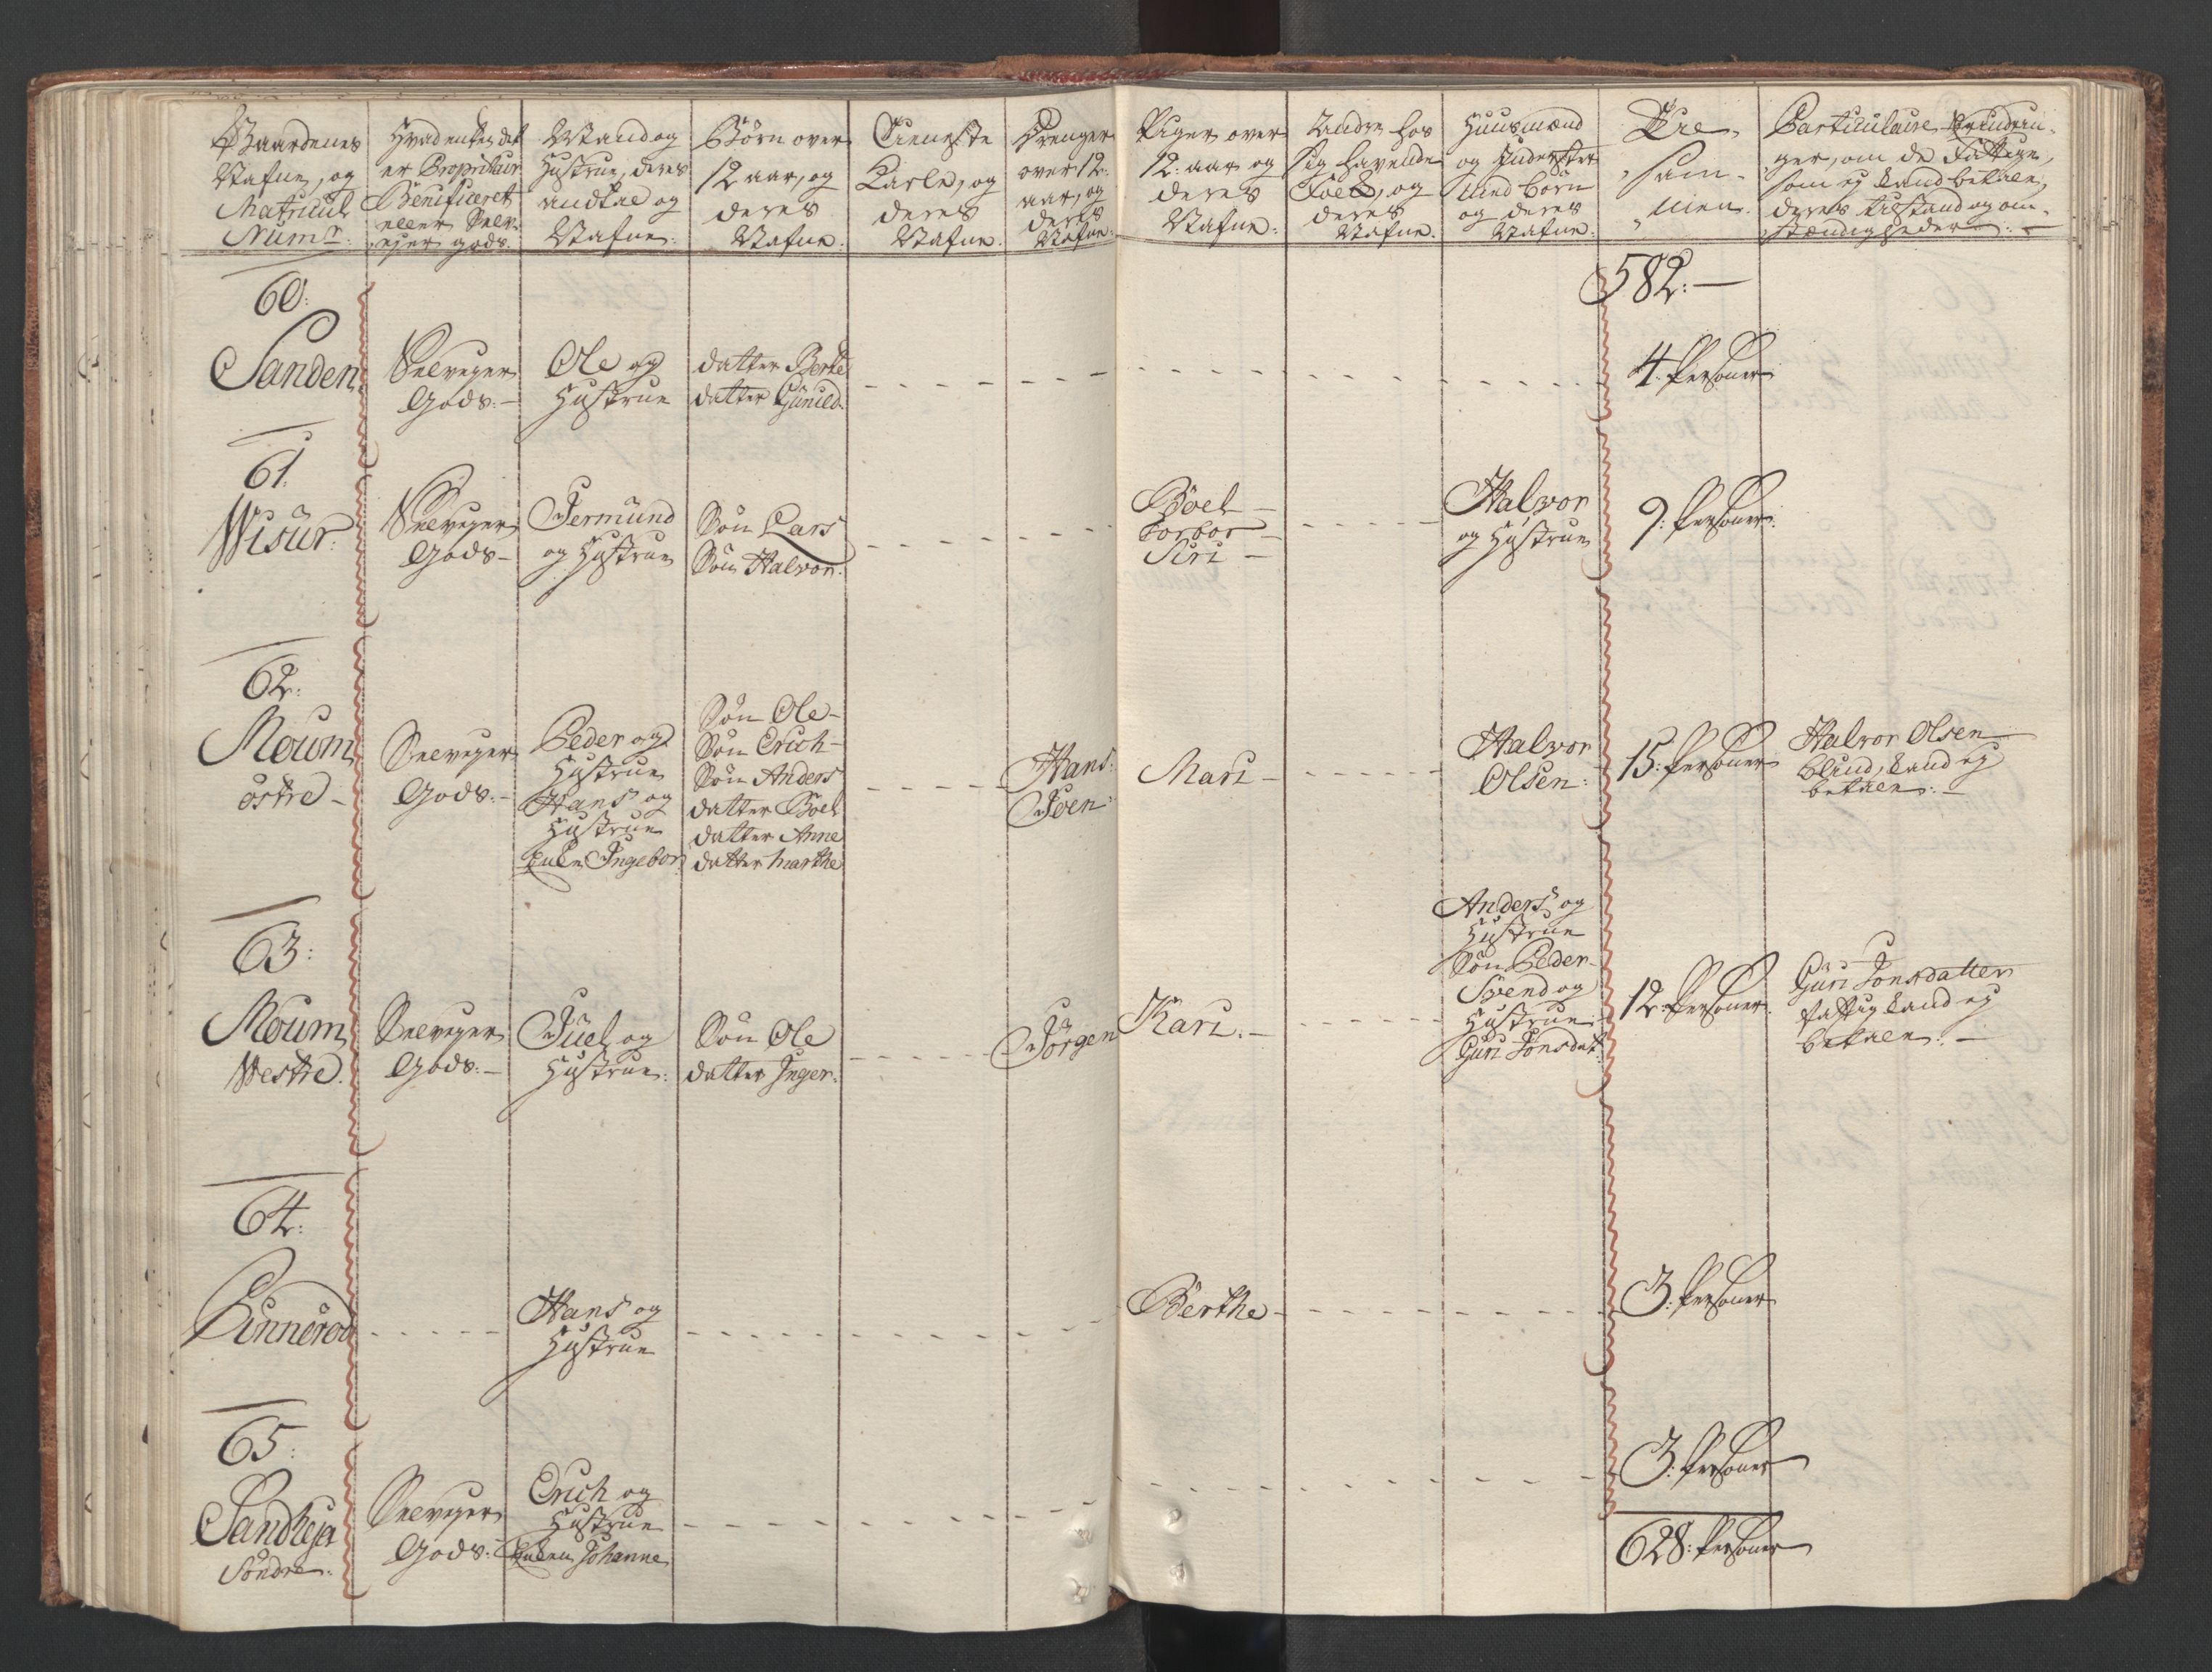 Gaardenes
Nafne, og
Matricul
Num:r
Hvad enten det
er Proprietair
Benificeret
eller Selv-
ejer gods.
Mand og
Hustrue, deres
andtal og
Nafne.
Børn over
12 aar, og
deres
Nafne.
Tieneste
Karle, og
deres
Nafne.
Drenger
over 12
aar, og
deres
Nafne.
Piger over
12. aar og
deres
Nafne.
Andre hos
sig havende
Folk, og
deres
Nafne.
Huusmænd
og Inderster
med børn
og deres
Nafne.
Til-
sam-
men.
Particulaire
ger, om de Fattige,
som ej kand betale,
deres tilstand og om-
stændigheder.
582.
60.
Sanden
Selveyer
Gods.
Ole og
Hustrue
datter Berte
datter Gunild.
4. Persohner
61.
Wisür.
Selveyer
Gods
Jermünd
og Hustrue
Søn Lars
Søn Halvor.
Boel
Torbor
Siri
Halvor
og Hustrue
9. Persohner.
62.
Moüm
östre
Selveyer
Gods.
Peder og
Hustrue
Hans og
Hustrue
Enke Ingebor
Søn Ole
Søn Erich
Søn Anders
datter Boel
datter Anne
datter Marthe
Hans.
Joen.
Mari
Halvor
Olsen.
15. Persohner
Halvor Olsen
blind, kand ej
betale.
63.
Moüm
Westre.
Selveyer
Gods.
Jüel og
Hustrue.
Søn Ole
datter Inger.
Jörgen
Kari.
Anders og
Hustrue
Søn Peder
Svend og
Hustrue
Güri Jonsdat:
12. Persohner.
Güri Jonsdatter
fattig kand ej
betale.
64.
Linneröd
Hans og
Hustrue
Berthe
3. Persohner
65.
Sandhejer
Söndre.
Selveyer
Gods.
Erich og
Hustrue
Enken Johanne
3. Persohner
628. Persohner